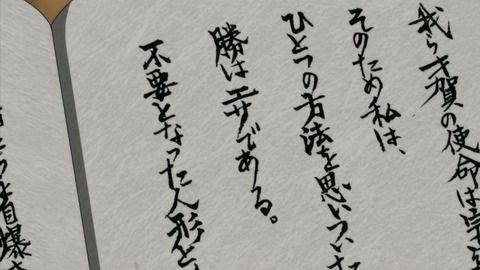 我ら才賀の使命は
そのため私は、
ひとつの方法を思いついた
勝はエサである。
不要となった人形と、
自爆